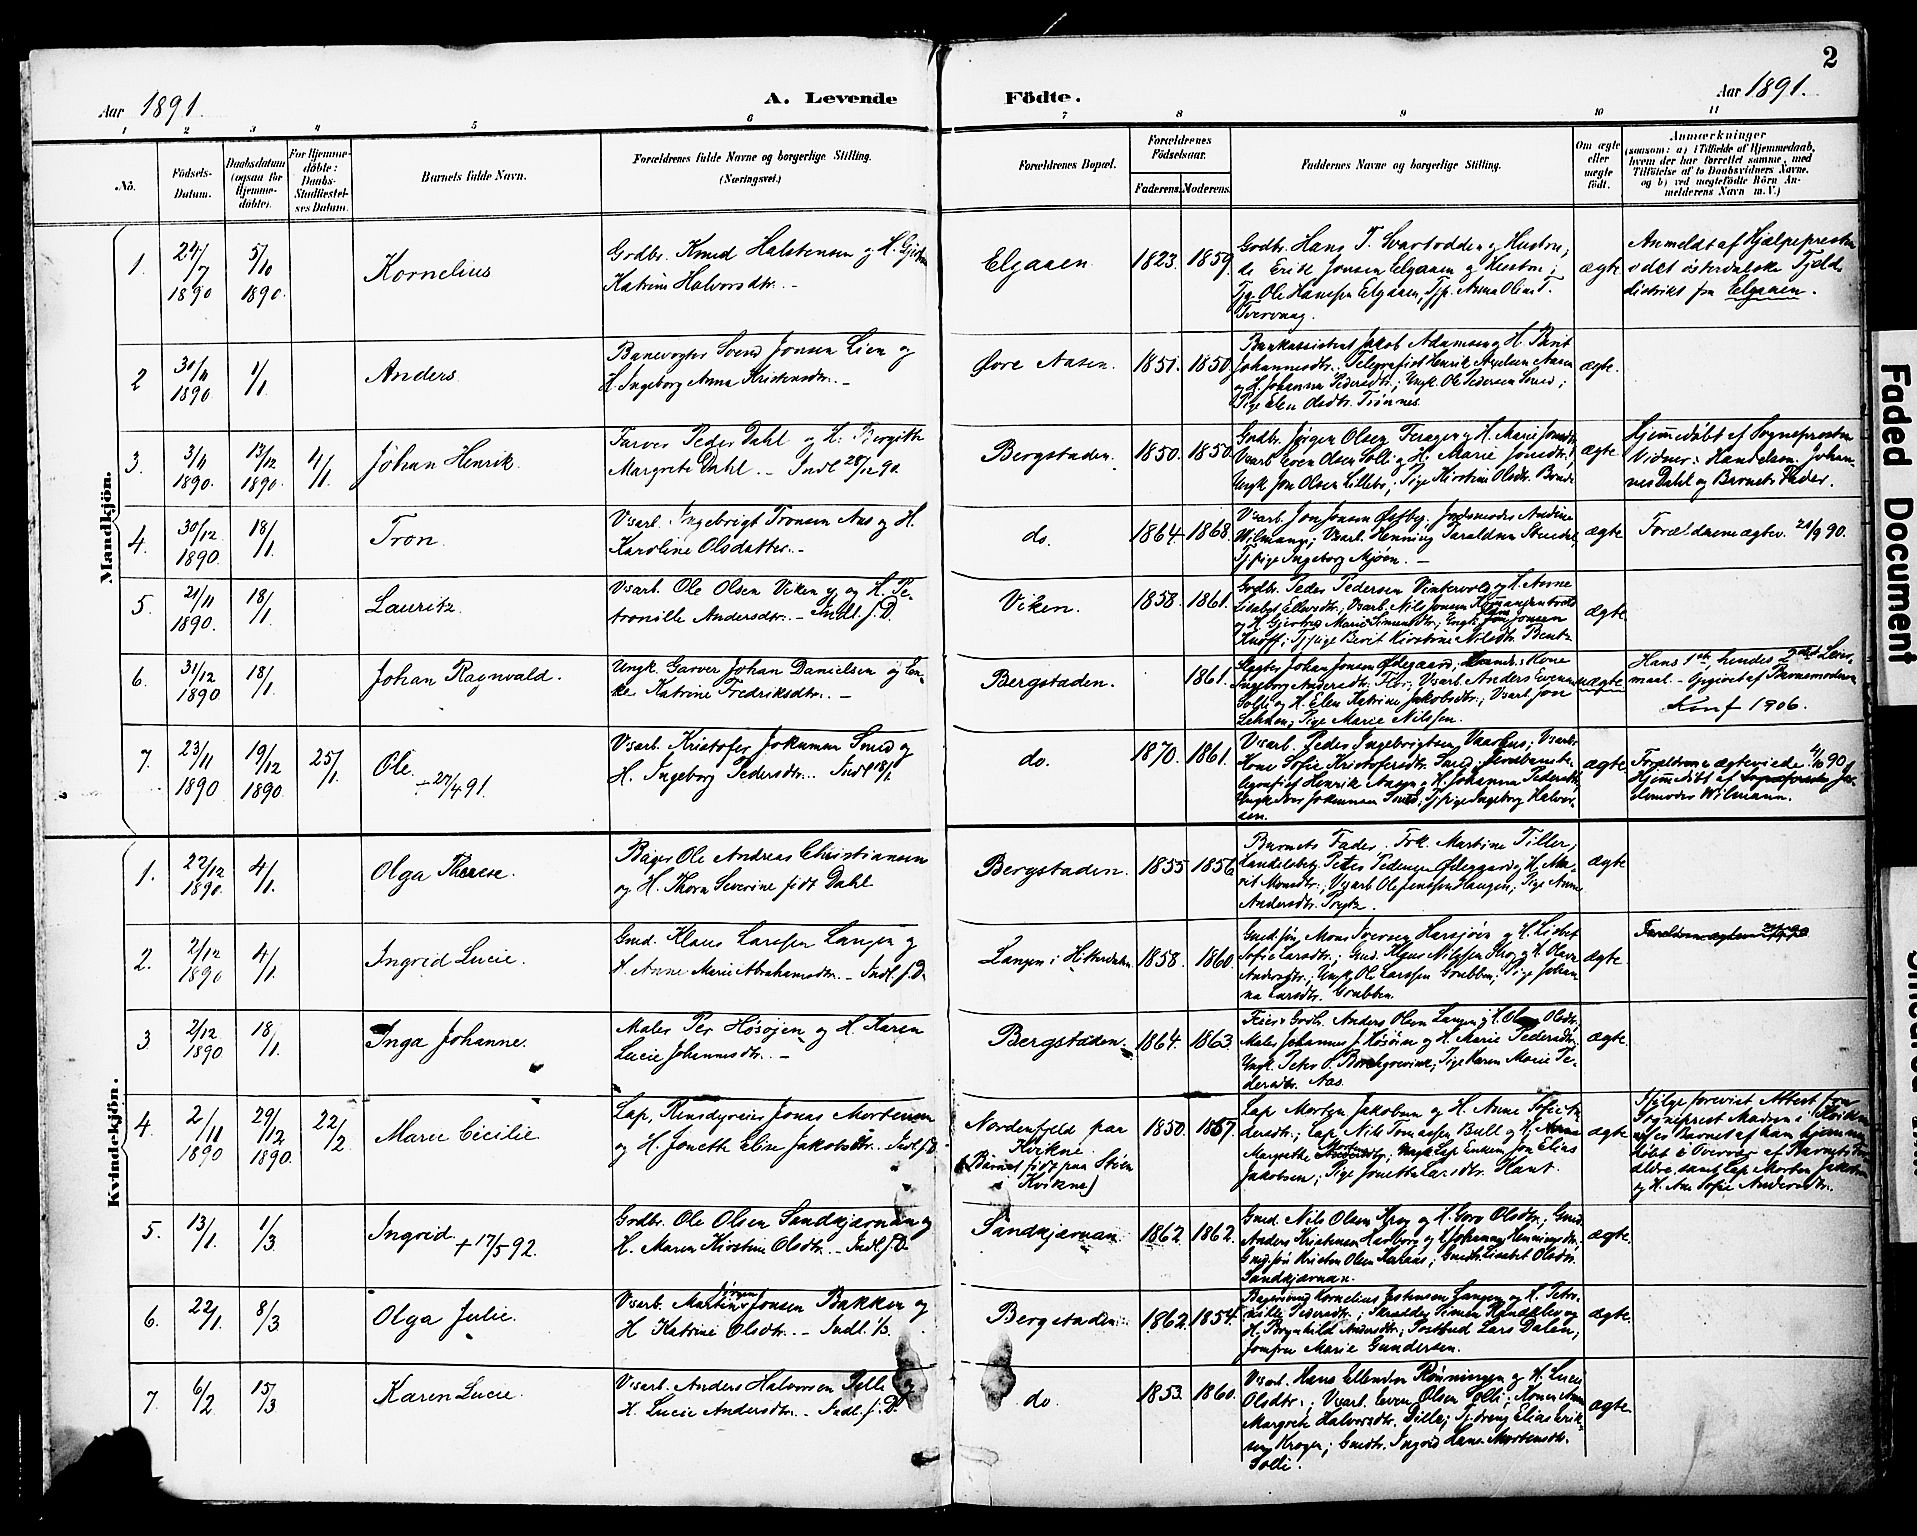 2
Aar 1891.
A. Levende Fødte.
Aar 1891.
1 2 3 4 5 6 7 8 9 10 11
No.
Fødsels-Datum.
Daabsdatum (ogsaa for Hjemmedøbte).
For Hjemmedøbte: Daabs-Stadfæstelses Datum.
Barnets fulde Navn.
Forældrenes fulde Navne og borgerlige Stilling. (Næringsvei.)
Forældrenes Bopæl.
Forældrenes Fødselsaar.
Faderens. Moderens.
Faddernes Navne og borgerlige Stilling.
Om ægte eller uægte født.
Anmærkninger (saasom: a) i Tilfælde af Hjemmedaab, hvem der har forrettet samme, med Tilføielse af to Daabsvidners Navne, og b) ved uegtefødte Børn Anmelderens Navn m. V.)
Mandkjøn.
1. 24/7 1890 5/10 1890. Kornelius
Grdbr. Knud Halstensen og H.
Katrine Halvorsdtr. –
Elgaaen 1823. 1859.
Grdbr. Hans T. Svartodden og Hustru;
do Erik Jonsen Elgaaen og Hustru;
Tjg. Ole Hansen Elgaaen, Tjp. Anna Oline T.
ægte
Anmeldt af Hjælpepresten
i det østerdalske Fjeld-
distrikt fra Elgaaen.
2 30/11 1890 1/1. Anders
Banevogter Svend Jonsen Lien og
H. Ingeborg Anna Kristensdtr. –
Øvre Aasen. 1851. 1850
Bankassistent Jakob Adamsen og H. Berit
Johannesdtr.; Telegrafist Henrik Axelsen Aasen
og H. Johanna Pedersdtr.; Ungk. Ole Pedersen Smed;
Pige Elen Olsdtr. Trønnes.
ægte.
3. 3/11 1890. 13/12 1890. 4/1. Johan Henrik.
Farver Peder Dahl og H. Bergitte
Margrete Dahl. – Indl 28/12 90
Bergstaden. 1850. 1850
Grdbr. Jørgen Olsen Feragen og H. Marie Jonsdtr.
Vsarb. Even Olsen Solli og H. Marie Jonsdtr.;
Ungk. Jon Olsen Lillebo; Pige Kirstine Olsdtr.
ægte.
Hjemmedøbt af Sognepresten
Vidner: Handelsm. Johan-
nes Dahl og Barnets Fader.
4. 30/12 1890 18/1. Tron.
Vsarb. Ingebrigt Tronsen Aas og H.
Karoline Olsdatter. –
do. 1864. 1868.
Vsarb. Jon Jonsen Østby; Jordemoder Andine
Wilmann; Vsarb. Henning Taraldsen
Tj.pige Ingeborg Mjøen. –
ægte.
Forældrene ægtev. 21/9 90.
5. 21/11 1890. 18/1. Lauritz.
Vsarb. Ole Olsen Viken og H. Pe-
tronille Andersdtr. – Indl. f. D.
Viken. 1858. 1861.
Grdbr. Peder Pedersen Vintervold og H. Anne
Lisabet Ellevsdtr.; Vsarb. Nils Jonsen
og H. Gjertrud Marie Simensdtr.; Ungk. Jon Jonsen
Knoff; Tj.pige Berit Kirstine Nilsdtr.
ægte.
6. 31/12 1890 18/1. Johan Ragnvald.
Ungk. Garver Johan Danielsen og En-
ke Katrine Fredriksdtr. –
Bergstaden. 1861.
Slagter Johan Jonsen Ødegaard,
Ingeborg Andersdtr. Flor; Vsarb. Anders Evensen
Solli og H. Elen Katrine Jakobsdtr.; Vsarb. Jon
Pige Marie Nilssen.
uægte
Hans 1ste hendes 2det Leier-
maal – Opgivet af Barnemoderen
Konf 1906.
7. 23/11 1890 19/12 1890. 25/1. Ole. + 27/4 91.
Vsarb. Kristofer Jokumsen Smed og
H. Ingeborg Pedersdtr. – Indl 18/1
do. 1870. 1861.
Vsarb. Peder Ingebrigtsen Vaarhus; Vsarb.
Kone Sofie Kristofersdtr. Smed;
Henrik Aasen og H. Johanna Pedersdtr.
Jokumsen Smed; Tj.pige Ingeborg Halvor-
sen.
ægte
Forældrene ægteviede 90
Hjemmedøbt af Jor-
demoder Wilmann.
Kvindekjøn.
1. 27/12 1890. 4/1. Olga Therese.
Bager Ole Andreas Christiansen
og H. Thora Severine født Dahl
Bergstaden. 1855 1856
Barnets Fader. Frk. Martine Tiller,
Handelsbetj. Peter Pedersen Ødegaard og H. Ma-
rit Monsdtr.; Vsarb. Ole Jenssen Haugen; Pige Anne
Andersdtr. Prytz.
ægte
2. 2/12 1890 4/1. Ingrid Lucie.
Gmd. Klaus Larssen Langen og
H. Anne Marie Abrahamsdtr. – Indl. f. D.
Langen i Hitterdalen 1858. 1860.
Gmd.søn Mons Iversen Harsjøen og H. Lisbet
Sofie Larsdtr.; Gmd. Klaus Nilssen Krog og H. Olava
Andersdtr.; Ungk. Ole Larssen Grubben; Pige Johan-
na Larsdtr. Grubben.
ægte.
3 2/12 1890 18/1. Inga Johanne.
Maler Per Høsøjen og H. Karen
Lucie Johannesdtr. –
Bergstaden. 1864. 1863.
Feier Grdbr. Anders Olsen Langen og H. Olsdtr.
Maler Johannes J. Høsøien og H. Marie Pedersdtr.
Ungk. Peter O. Borchgrevink; Pige Karen Marie Pe-
dersdtr. Aas.
ægte
4. 2/11 1890 29/12 1890. 22/2. Marie Cicilie.
Lap, Rensdyreier Jonas Mortensen
og H. Jonette Elise Jakobsdtr. Indl. f. D.
Nordenfjeld paa Kvikne.
(Barnet født paa Støen i Kvikne) 1850. 1857.
Lap Morten Jakobsen og H. Anne Sofie An-
dersdtr.; Lap Nils Tomassen Bull og H.
Margrethe Lap Enken Jon Elias
Jakobsen; Pige Jonetta Larsdtr. Kant.
ægte
Ifølge forevist Attest fra
Sogneprest Madsen i Kvikne
er Barnet af ham hjemme-
døbt i Overvær af Barnets For-
ældre samt Lap Morten Jakobsen
og H. Ane Sofie Andersdtr.
5. 13/1. 1/3. Ingrid + 17/5 92.
Grdbr. Ole Olsen Sandkjærnan og
H. Maren Kirstine Olsdtr. – Indl. f. D.
Sandkjærnan. 1862. 1862.
Gmd. Nils Olsen Krog og H. Goro Olsdtr.; Gmd.
Anders Kristensen Harborg og H. Johanna Henningsdtr.
Gmd.søn Kristen Olsen; Gmdtr. Lisabet Olsdtr.
Sandkjærnan.
ægte.
6. 22/1. 8/3. Olga Julie.
Vsarb. Martin Jørgen Jonsen Bakken og
H. Katrine Olsdtr. – Indl. 1/3.
Bergstaden. 1862. 1854.
Bagersvend Kornelius Jensen Langen og H. Petro-
nille Pedersdtr.; Skrædder Simen Kandahl og
H. Brynhild Andersdtr.; Postbud Lars Dalen;
Jomfru Marie Gundersen.
ægte.
7. 6/2. 15/3. Karen Lucie.
Vsarb. Anders Halvorsen Pille og
H. Lucie Andersdtr. – Indl. f. D.
do. 1853. 1860.
Vsarb. Hans Ellendsen Rønningen og H. Lucie
Olsdtr.; Vsarb. Even Olsen Solli; Kone Anne
Margrete Halvorsdtr. Pille; Tj.dreng Elias Erik-
sen Krogen; Gmdtr. Ingrid Hans Mortensdtr.
Solli.
ægte.
Faded Document